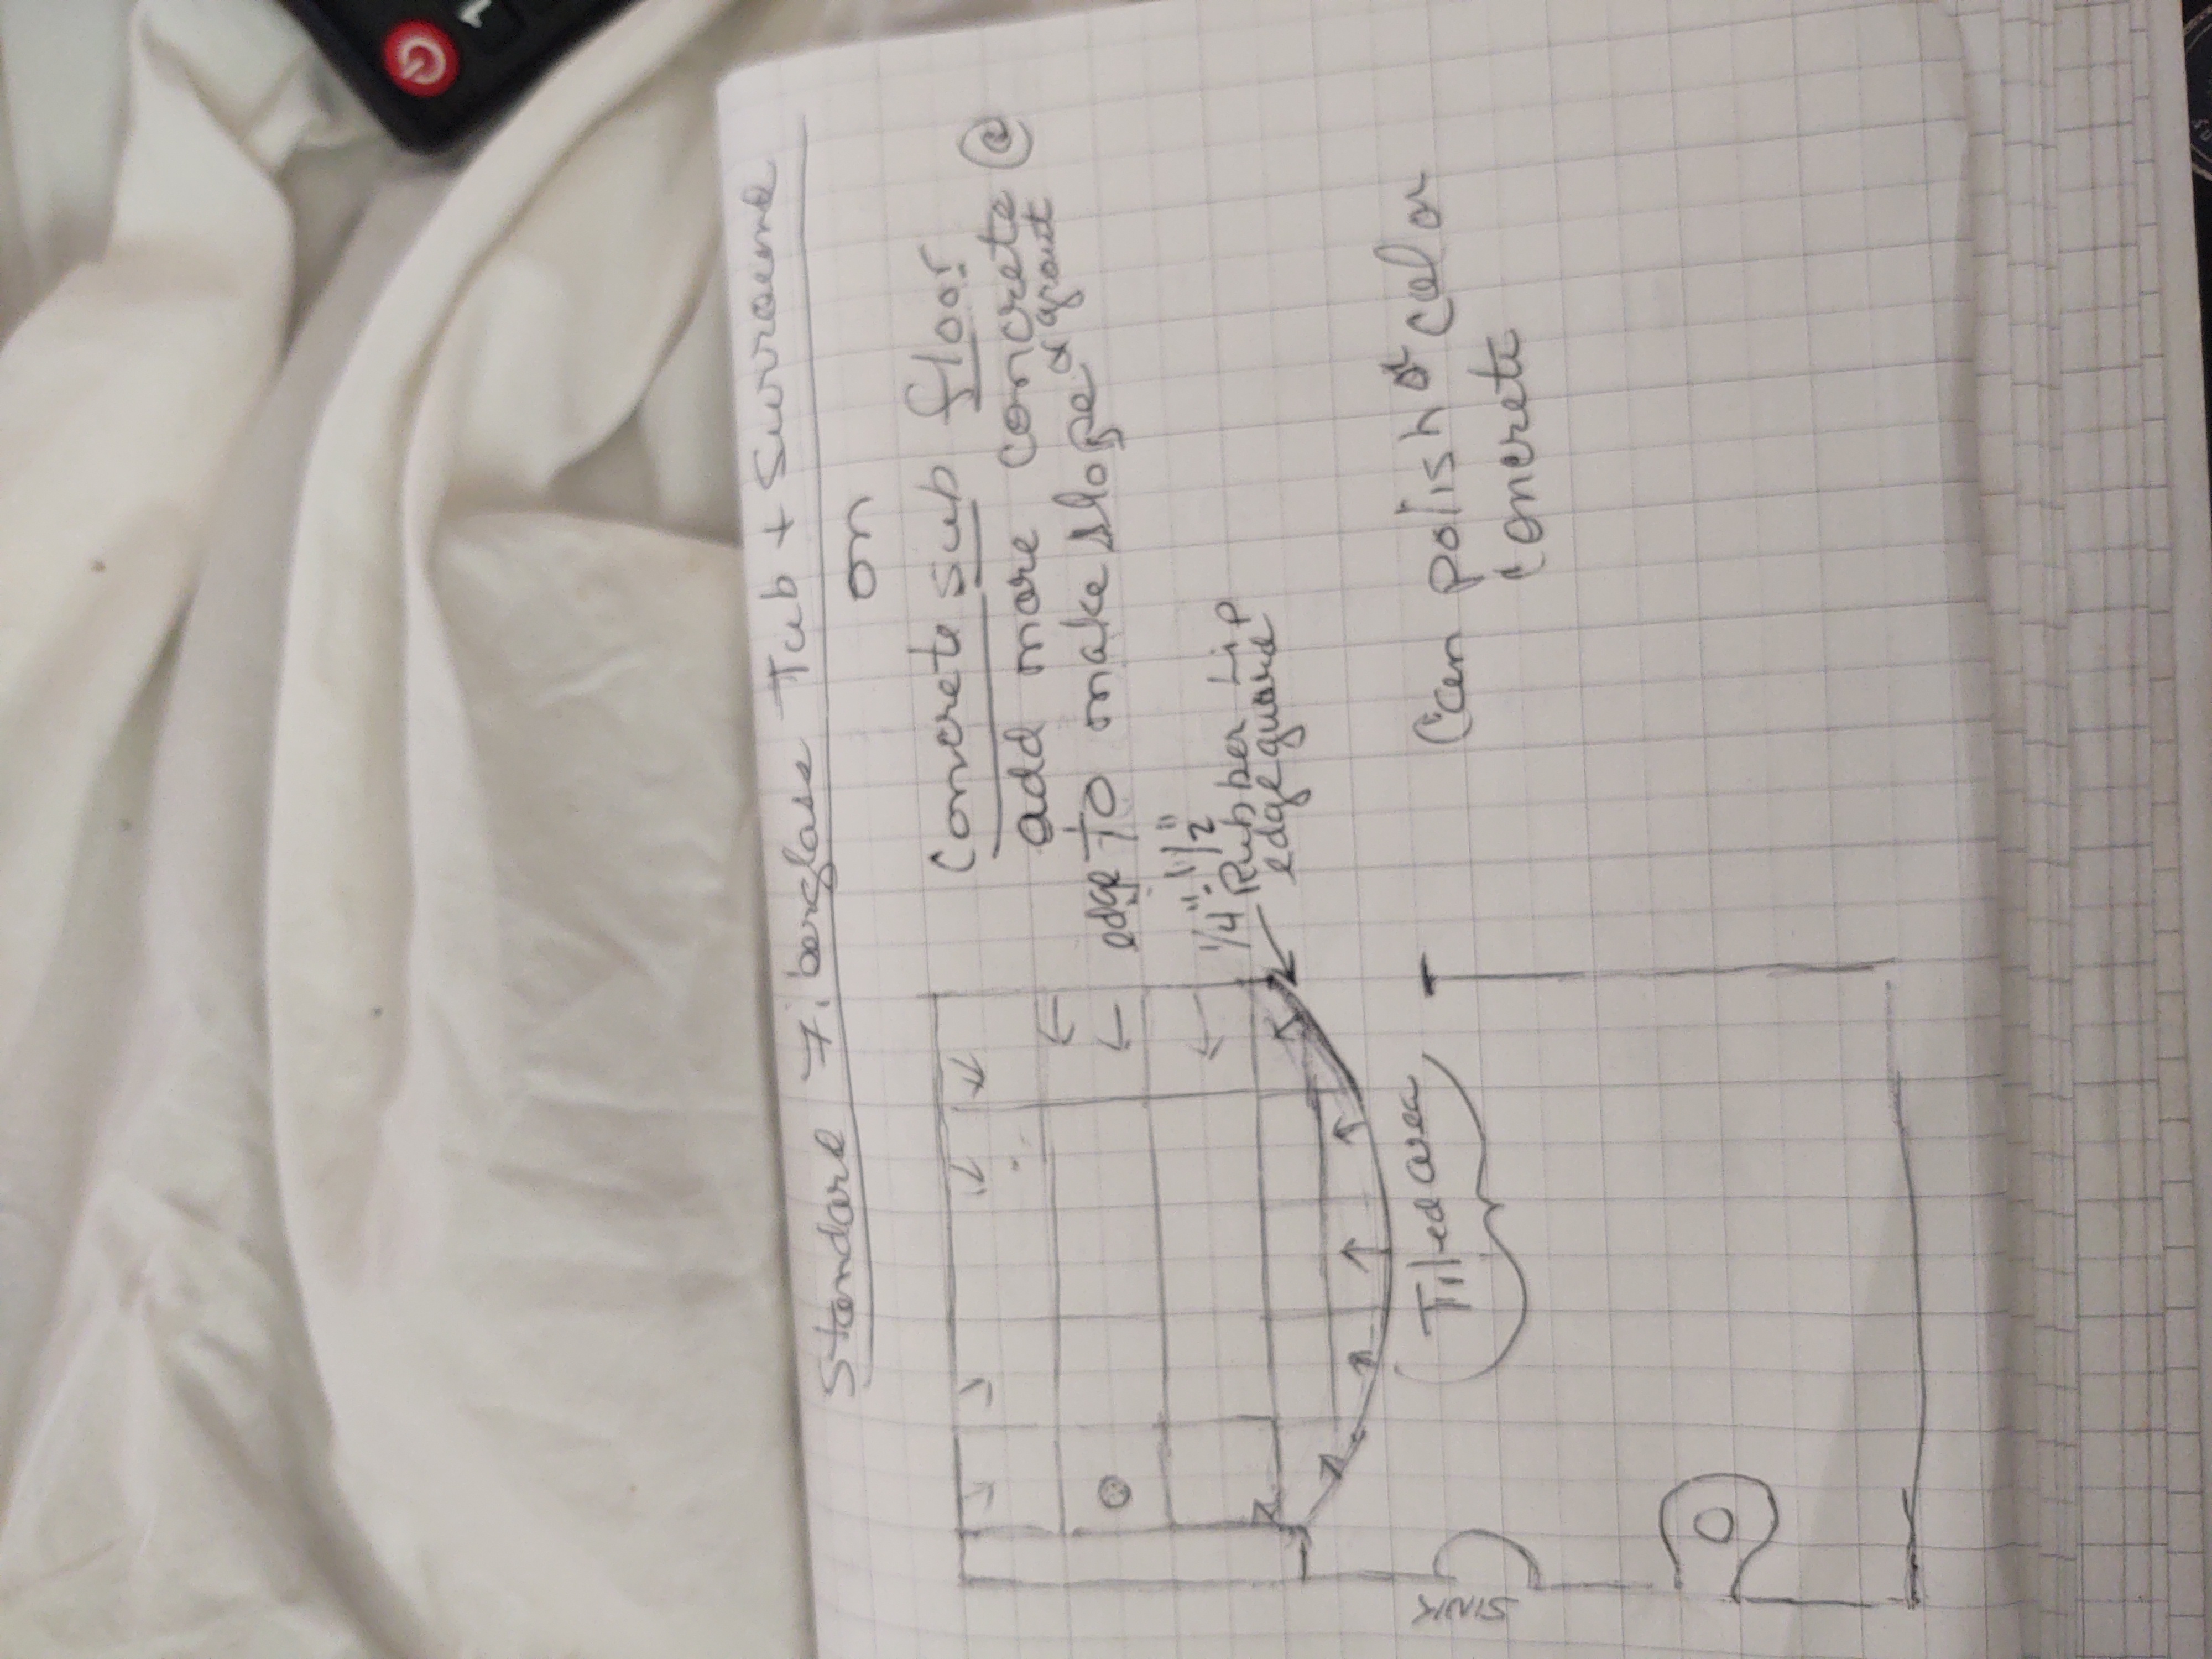 Standard Fiberglass Tub + Surround
on
Concrete sub floor
add more concrete @
edge to make slope & grout
1/4" - 1/2"
Rubber Lip
edge guard
Can polish or color
concrete
Tiled area
SINK
1